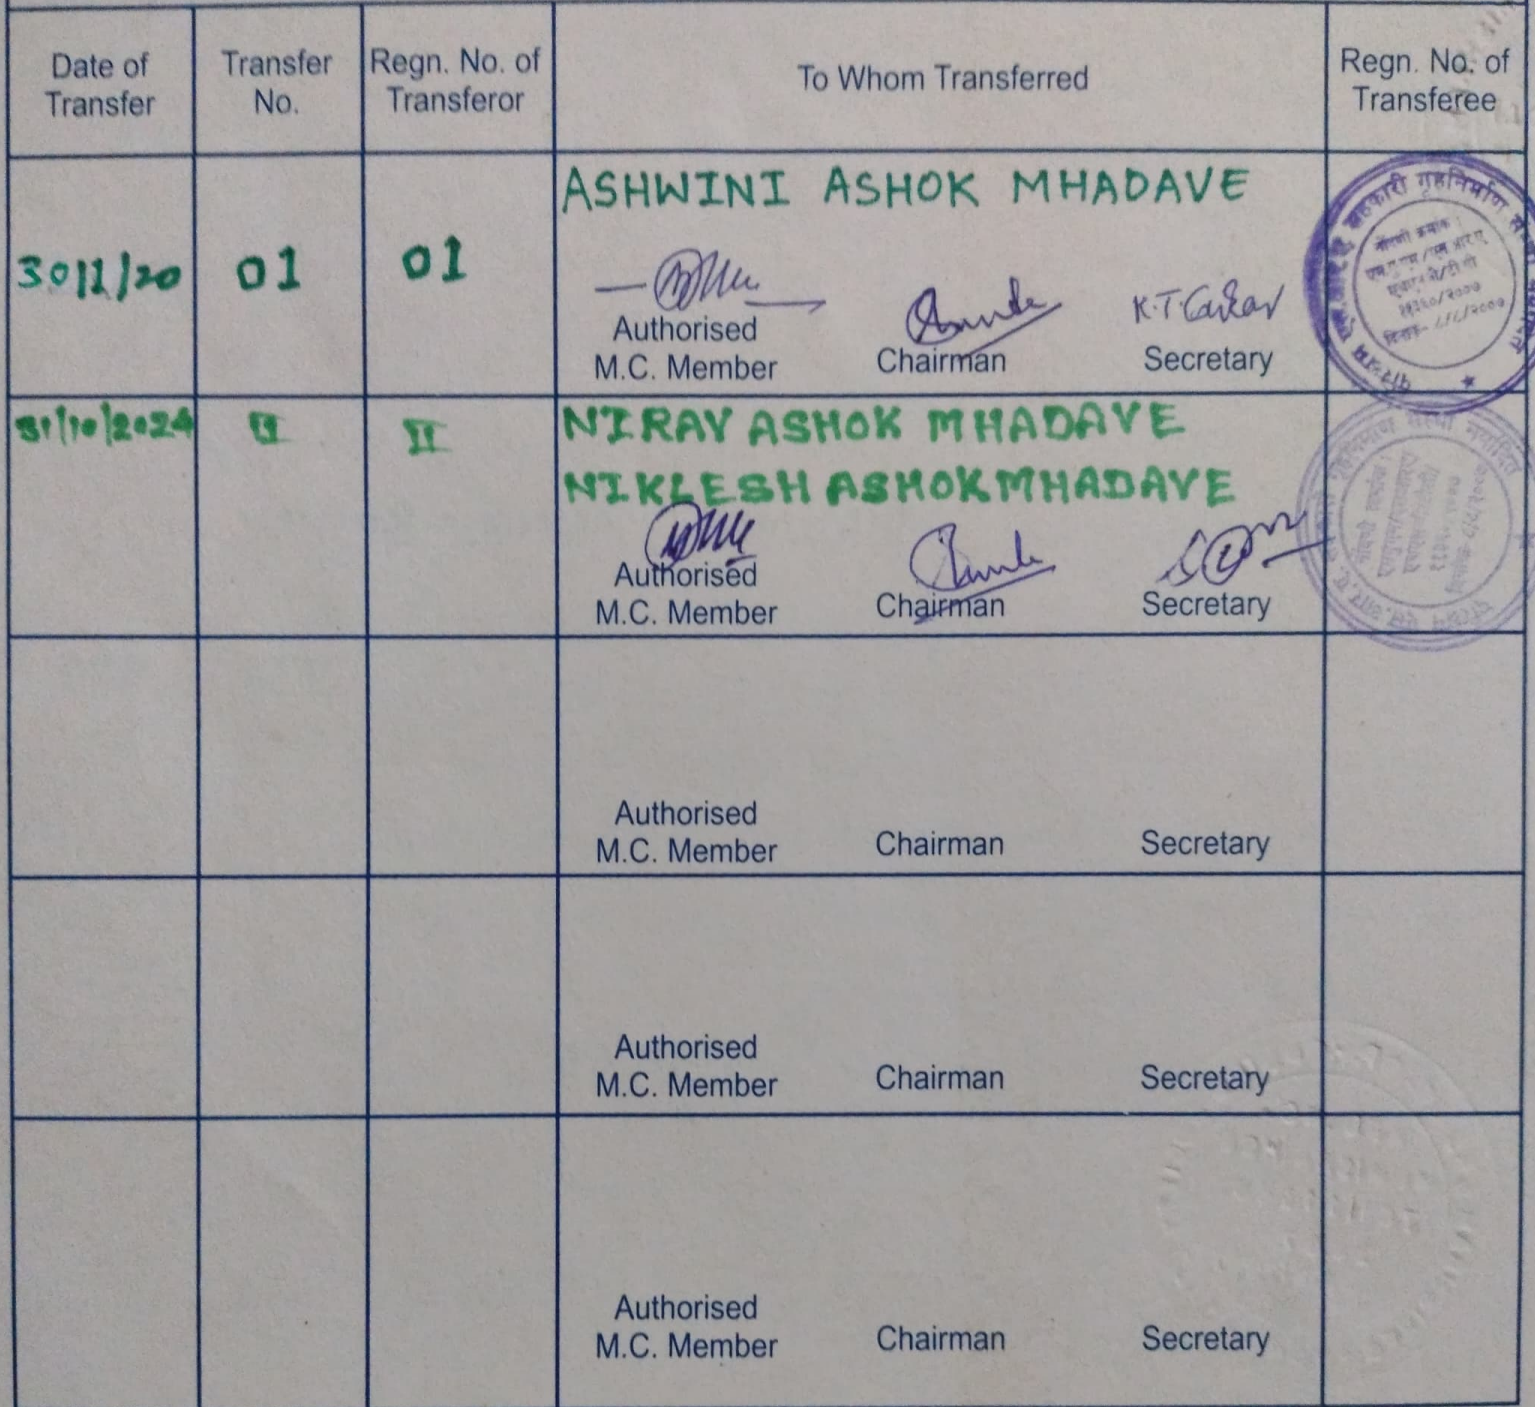 Date of Transfer
Transfer No.
Regn. No. of Transferor
To Whom Transferred
Regn. No. of Transferee
ASHWINI ASHOK MHADAVE
30/1/20 01 01
K.T.
Authorised M.C. Member
Chairman
Secretary
31/10/2024 II II
NIRAV ASHOK MHADAVE
NIKLESH ASHOK MHADAVE
Authorised M.C. Member
Chairman
Secretary
Authorised M.C. Member
Chairman
Secretary
Authorised M.C. Member
Chairman
Secretary
Authorised M.C. Member
Chairman
Secretary
सहकारी गृहनिर्माण